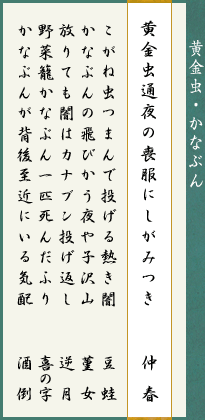 黄金虫・かなぶん
黄金虫通夜の喪服にしがみつき 仲春
こがね虫つまんで投げる熱き闇 豆蛙
かなぶんの飛びかう夜や子沢山 菫女
放りても闇はカナブン投げ返し 逆月
野菜籠かなぶん一匹死んだふり 喜の字
かなぶんが背後至近にいる気配 酒倒